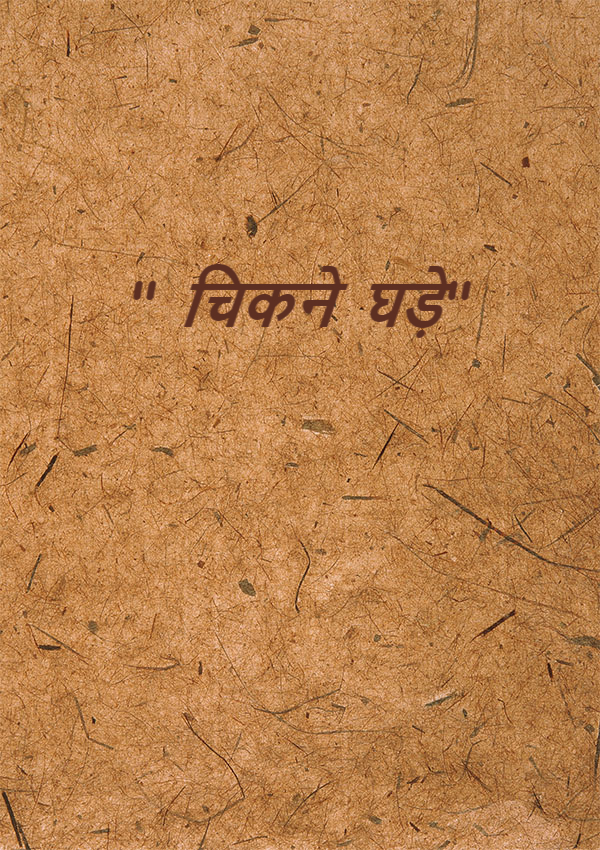 " चिकने घड़े"